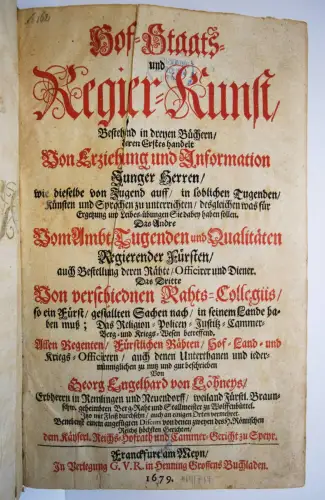 Hof-Staats-
und
Regier-Kunst/
Bestehnd in dreyen Büchern/
deren Erstes handelt
Von Erziehung und Information
Junger Herren/
wie dieselbe von Jugend auff/ in löblichen Tugenden/
Künsten und Sprachen zu unterrichten/ desgleichen was für
Ergetzung und Leibes-übungen Sie dabey haben sollen.
Das Andre
Vom Ambt/ Tugenden und Qualitäten
Regierender Fürsten/
auch Bestellung deren Rähte/ Officirer und Diener.
Das Dritte
Von verschiednen Rahts-Collegiis/
so ein Fürst/ gestallten Sachen nach/ in seinem Lande ha-
ben muß; Das Religion- Policey- Justitz- Cammer-
Berg- und Kriegs- Wesen betreffend.
Allen Regenten/ Fürstlichen Rähten/ Hof- Land- und
Kriegs- Officirern/ auch denen Unterthanen und ieder-
männiglichen zu nutz und gut beschrieben
Von
Georg Engelhard von Löhneys/
Erbherrn in Remlingen und Neuendorff/ weiland Fürstl. Braun-
schw. geheimbten Berg-Raht und Stallmeister zu Wolffenbüttel.
Itzo mit Fleiß durchsehen/ auch an einigen Orten vermehret.
Benebenst einem angefügten Discours von denen zweyen des H. Römischen
Reichs höchsten Gerichten/
dem Käyserl. Reichs-Hofrath und Cammer-Gericht zu Speyr.
Franckfurt am Meyn/
In Verlegung G. V. R. in Henning Großens Buchladen.
1679.